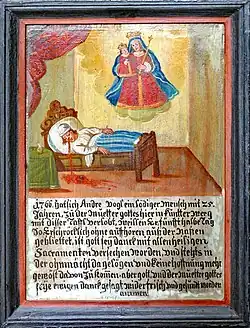 1766 hat sich Andre Vogl ein lödiger Mensch mit 25
Jahren, zu der Muetter gottes hier in Künster weeg
mit diser Taffl verlobt, weil ien Er fünfthalbe Tag
so Erschrocklich ohne aufhören auß der Nasen
gebliettet, ist gott sey danck mit allen heiligen
Sacramenten versechen worden, und stehts in
der ohnmacht da gelogen und keine hoffnung mehr
gewöst da von zu komen aber gott und der Muetter gottes
seye Ewigen danck gesagt wider frisch und gesundt worden